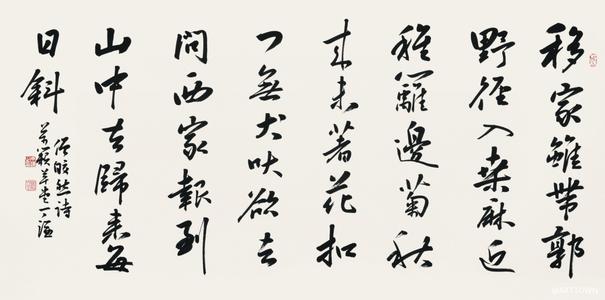 移家雖帶郭
野徑入桑麻近
種籬邊菊秋
來未著花扣
门無犬吠欲去
問西家報到
山中去歸来每
日斜
僧皎然詩